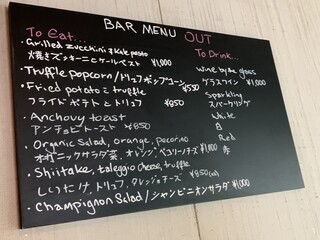 BAR MENU OUT
To Eat...
・Grilled zucchini & kale pesto
焼きズッキーニとケールペスト ¥1,000
・Truffle popcorn/トリュフポップコーン ¥550
・Fried potato & truffle
フライドポテトとトリュフ ¥850
・Anchovy toast
アンチョビトースト ¥850
・Organic Salad, orange, pecorino
オーガニックサラダ菜、オレンジ、ペコリーノチーズ ¥1,000
・Shiitake, taleggio cheese, truffle
しいたけ、トリュフ、タレッジョチーズ ¥850
・Champignon Salad/シャンピニオンサラダ ¥1,000
To Drink...
Wine by the glass
グラスワイン ¥1,000
Sparkling
スパークリング
White
白
Red
赤